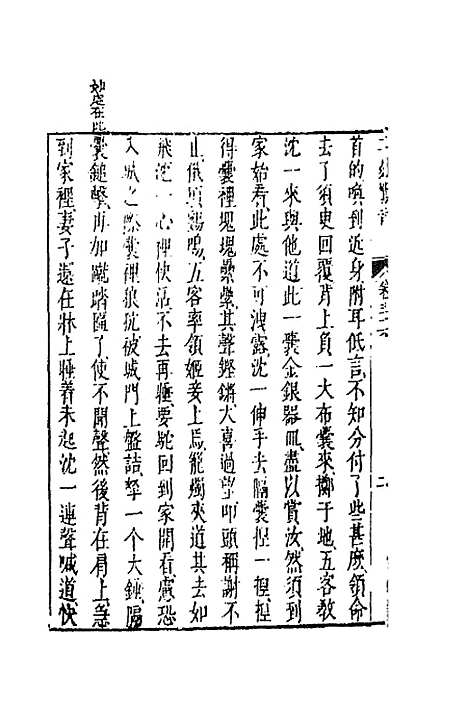 二刻驚奇
卷三十六
二
首的喚到近身附耳低言不知分付了些甚麽領命
去了須臾回覆背上負一大布囊來擲于地五客教
沈一來與他道此一囊金銀器皿盡以賞汝然須到
家始看此處不可洩露沈一伸手去隔囊捏一捏捏
得囊裡塊塊纍纍其聲鏗鏘大喜過望叩頭稱謝不
止俄頃鷄鳴五客率領姬妾上馬籠燭夾道其去如
飛沈一心裡快活不去再睡要馳回到家開看慮恐
入城之際囊裡狼犺被城門上盤詰拏一個大鎚隔
囊鎚擊再加蹴踏匾了使不聞聲然後背在肩上急
到家裡妻子還在牀上睡着未起沈一連聲喊道快
妙處在此